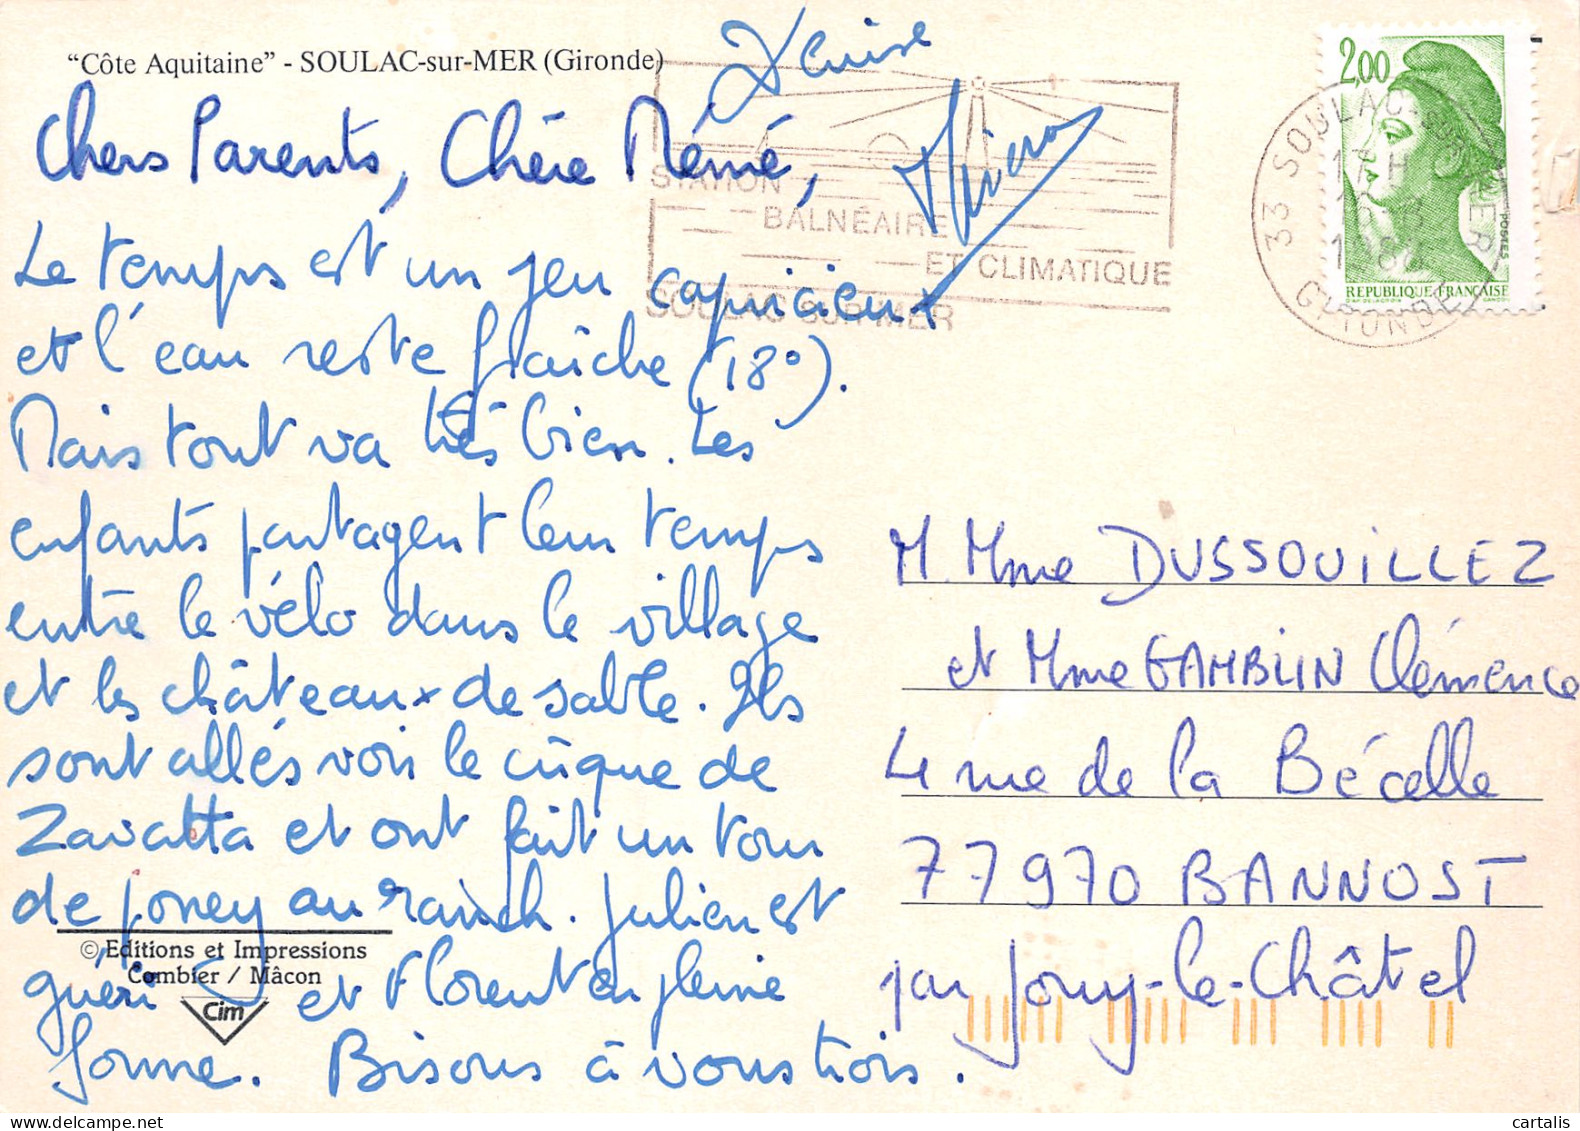 "Côte Aquitaine" - SOULAC-sur-MER (Gironde)
Chers Parents, Chère Mémé,
Le temps est un peu capricieux
et l'eau reste fraîche (18°).
Mais tout va très bien. Les
enfants partagent leur temps
entre le vélo dans le village
et les châteaux de sable. Ils
sont allés voir le cirque de
Zavatta et ont fait un tour
de poney au ranch. Julien est
guéri et Florent en pleine
forme. Bisous à vous trois.
© Editions et Impressions
Combier / Mâcon
Cim
STATION
BALNÉAIRE
ET CLIMATIQUE
SOULAC SUR MER
33 SOULAC-SUR-MER
17 H
GIRONDE
2,00
POSTES
REPUBLIQUE FRANÇAISE
M. Mme DUSSOUILLEZ
et Mme GAMBLIN Clémence
4 rue de la Bécelle
77970 BANNOST
par Jouy-le-Châtel